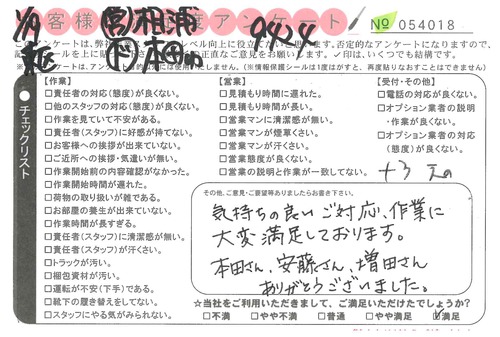 お客様満足度アンケート
№ 054018
1/9
営 相浦
下 本田
9424
このアンケートは、弊社サービスのレベル向上に役立てたいと思います。否定的なアンケートになりますので、
正直なご意見をお願いします。✓印は、いくつでも結構です。
チェックリスト
【作業】
□責任者の対応(態度)が良くない。
□他のスタッフの対応(態度)が良くない。
□作業を見ていて不安がある。
□責任者(スタッフ)に好感が持てない。
□お客様への挨拶が出来ていない。
□ご近所への挨拶・気遣いが無い。
□作業開始前の内容確認がなかった。
□作業開始時間が遅れた。
□荷物の取り扱いが雑である。
□お部屋の養生が出来ていない。
□作業時間が長すぎる。
□責任者(スタッフ)に清潔感が無い。
□責任者(スタッフ)が汗くさい。
□トラックが汚い。
□梱包資材が汚い。
□運転が不安(下手)である。
□靴下の履き替えをしてない。
□スタッフにやる気がみられない。
【営業】
□見積もり時間に遅れた。
□見積もり時間が長い。
□営業マンに清潔感が無い。
□営業マンが煙草くさい。
□営業マンが汗くさい。
□営業態度が良くない。
□営業の説明と作業が一致してない。
【受付・その他】
□電話の対応が良くない。
□オプション業者の説明
・作業が良くない。
□オプション業者の対応
(態度)が良くない。
その他、ご意見・ご要望等ありましたらお書き下さい。
気持ちの良いご対応、作業に
大変満足しております。
本田さん、安藤さん、増田さん
ありがとうございました。
☆当社をご利用いただきまして、ご満足いただけたでしょうか?
□不満 □やや不満 □普通 □やや満足 ☑満足